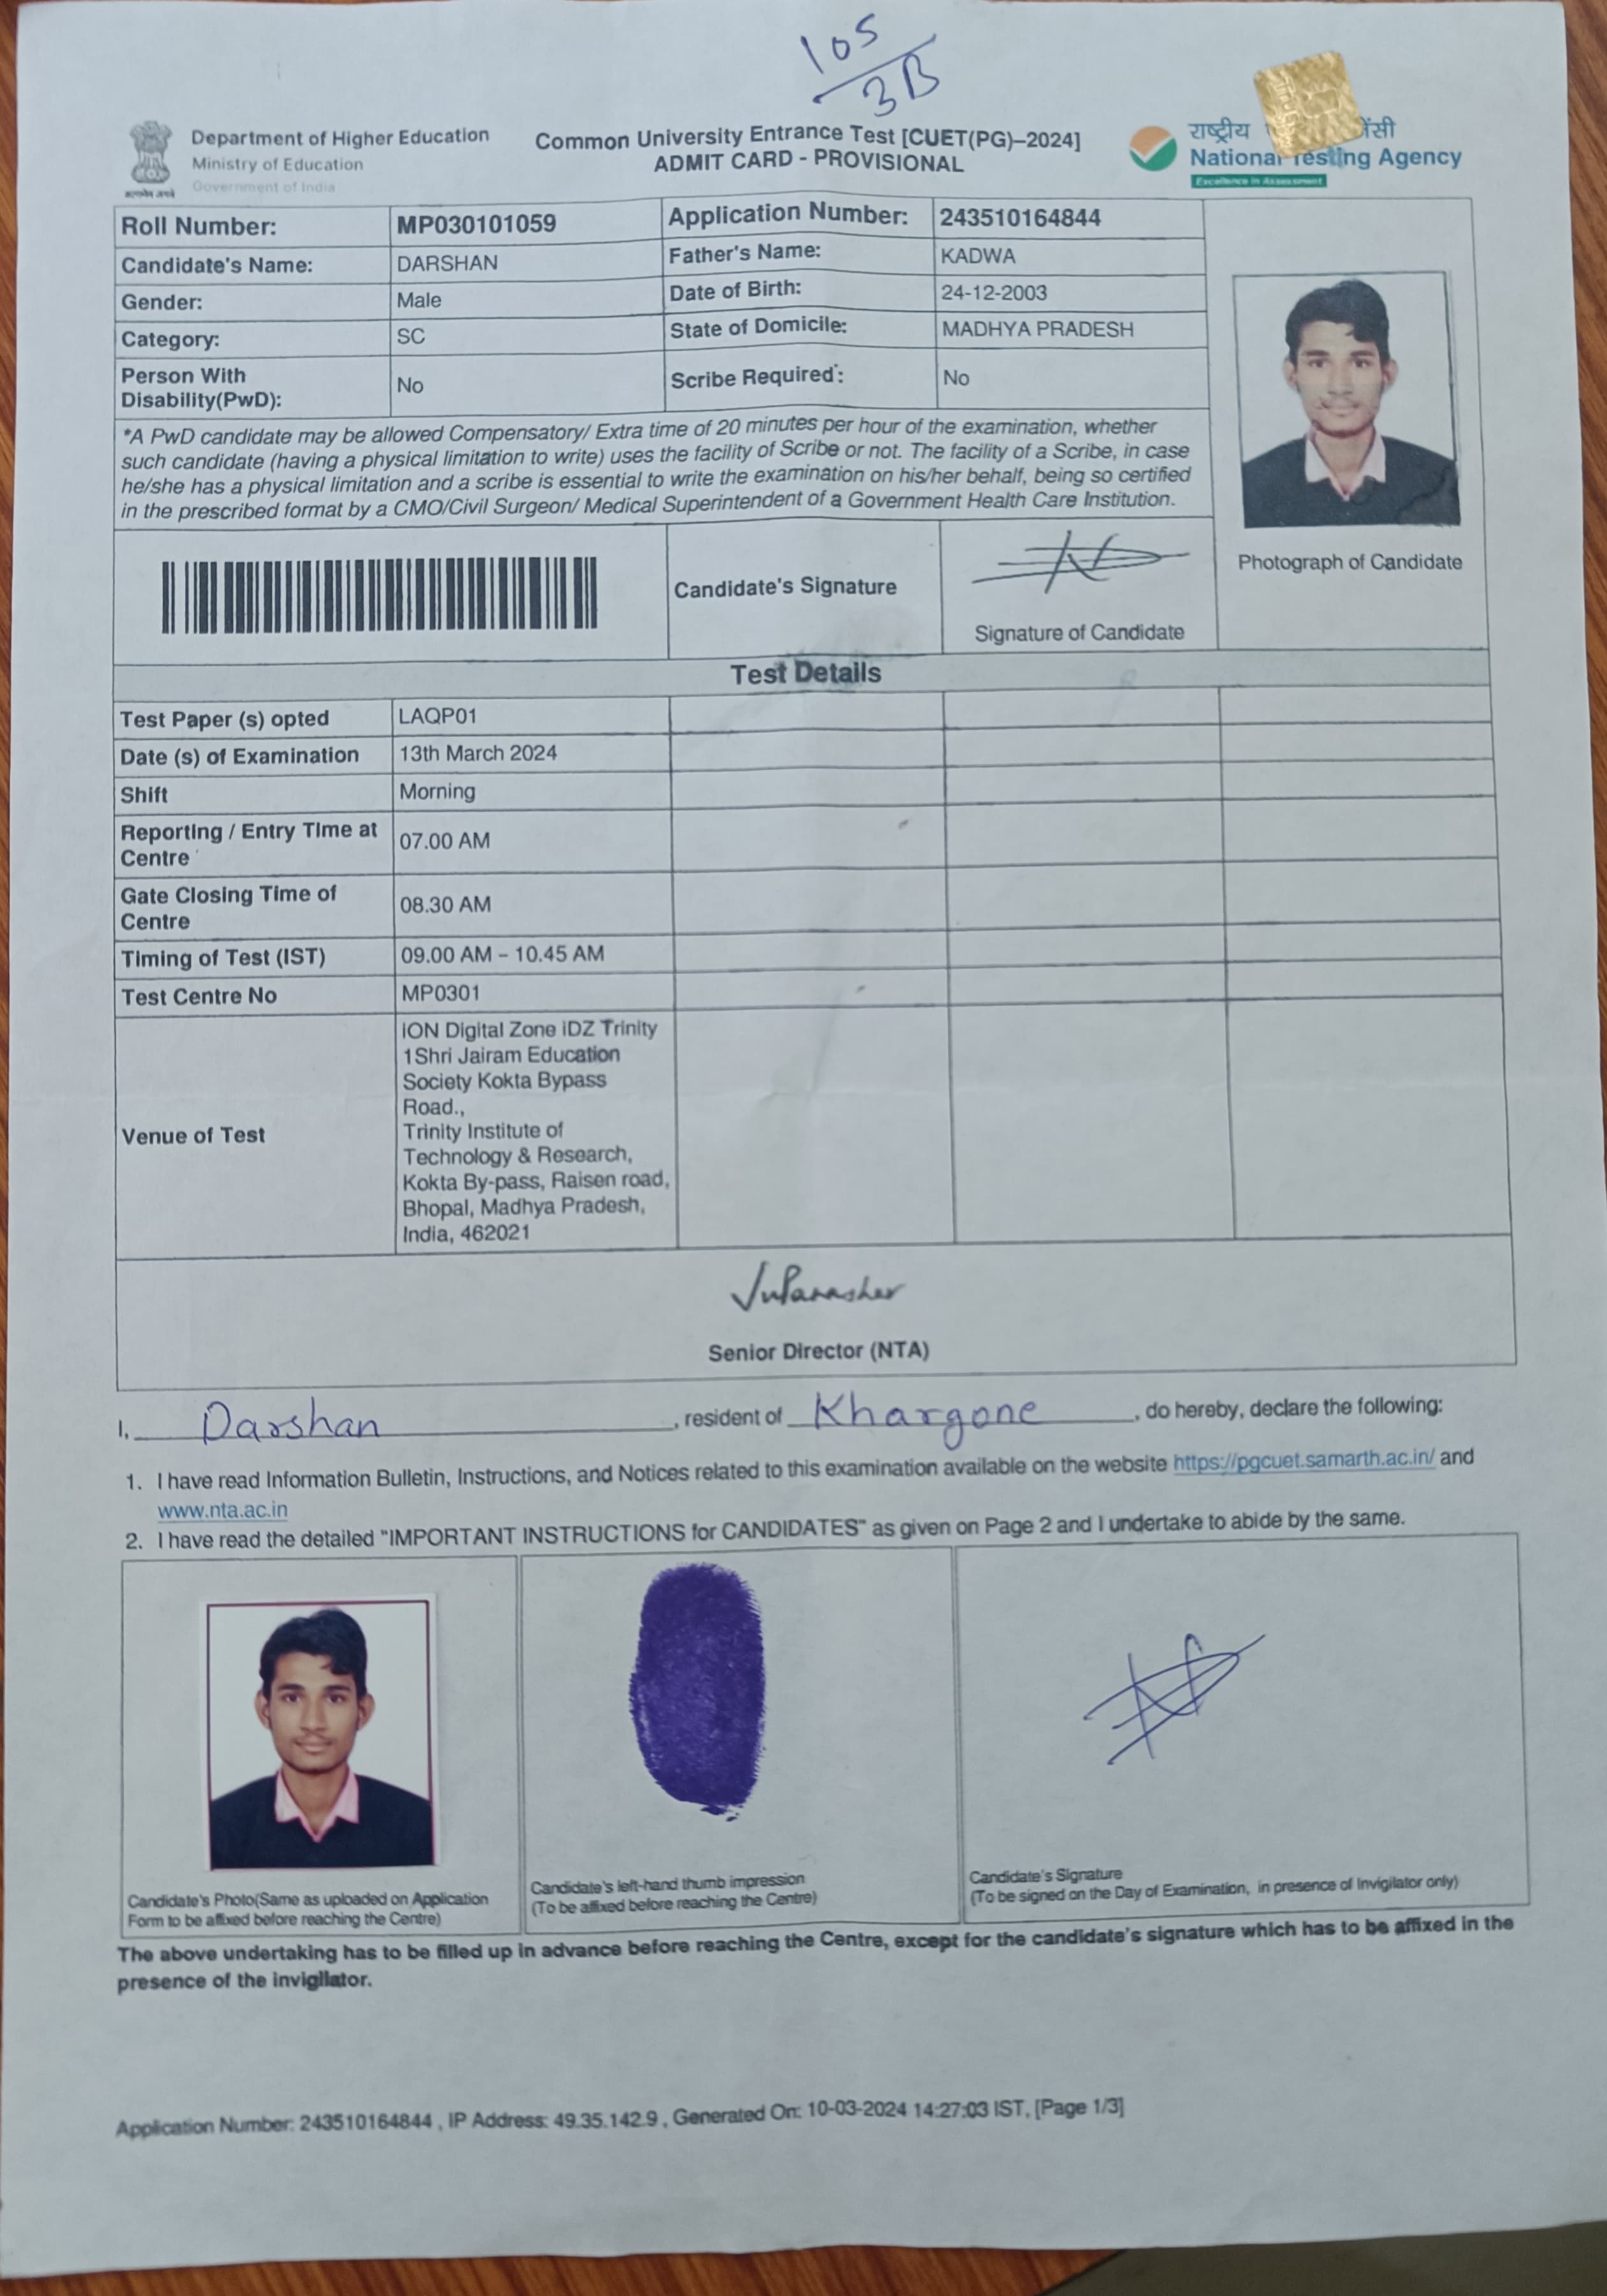 105
3B
Department of Higher Education
Ministry of Education
Government of India
सत्यमेव जयते
Common University Entrance Test [CUET(PG)–2024]
ADMIT CARD - PROVISIONAL
राष्ट्रीय ेंसी
National Testing Agency
Excellence in Assessment
Roll Number: MP030101059 Application Number: 243510164844
Candidate's Name: DARSHAN Father's Name: KADWA
Gender: Male Date of Birth: 24-12-2003
Category: SC State of Domicile: MADHYA PRADESH
Person With
Disability(PwD): No Scribe Required*: No
*A PwD candidate may be allowed Compensatory/ Extra time of 20 minutes per hour of the examination, whether
such candidate (having a physical limitation to write) uses the facility of Scribe or not. The facility of a Scribe, in case
he/she has a physical limitation and a scribe is essential to write the examination on his/her behalf, being so certified
in the prescribed format by a CMO/Civil Surgeon/ Medical Superintendent of a Government Health Care Institution.
Photograph of Candidate
Candidate's Signature
Signature of Candidate
Test Details
Test Paper (s) opted LAQP01
Date (s) of Examination 13th March 2024
Shift Morning
Reporting / Entry Time at
Centre 07.00 AM
Gate Closing Time of
Centre 08.30 AM
Timing of Test (IST) 09.00 AM – 10.45 AM
Test Centre No MP0301
Venue of Test
iON Digital Zone iDZ Trinity
1Shri Jairam Education
Society Kokta Bypass
Road.,
Trinity Institute of
Technology & Research,
Kokta By-pass, Raisen road,
Bhopal, Madhya Pradesh,
India, 462021
Senior Director (NTA)
I, Darshan, resident of Khargone, do hereby, declare the following:
1. I have read Information Bulletin, Instructions, and Notices related to this examination available on the website https://pgcuet.samarth.ac.in/ and
www.nta.ac.in
2. I have read the detailed "IMPORTANT INSTRUCTIONS for CANDIDATES" as given on Page 2 and I undertake to abide by the same.
Candidate's Photo(Same as uploaded on Application
Form to be affixed before reaching the Centre)
Candidate's left-hand thumb impression
(To be affixed before reaching the Centre)
Candidate's Signature
(To be signed on the Day of Examination, in presence of Invigilator only)
The above undertaking has to be filled up in advance before reaching the Centre, except for the candidate's signature which has to be affixed in the
presence of the invigilator.
Application Number: 243510164844 , IP Address: 49.35.142.9 , Generated On: 10-03-2024 14:27:03 IST, [Page 1/3]